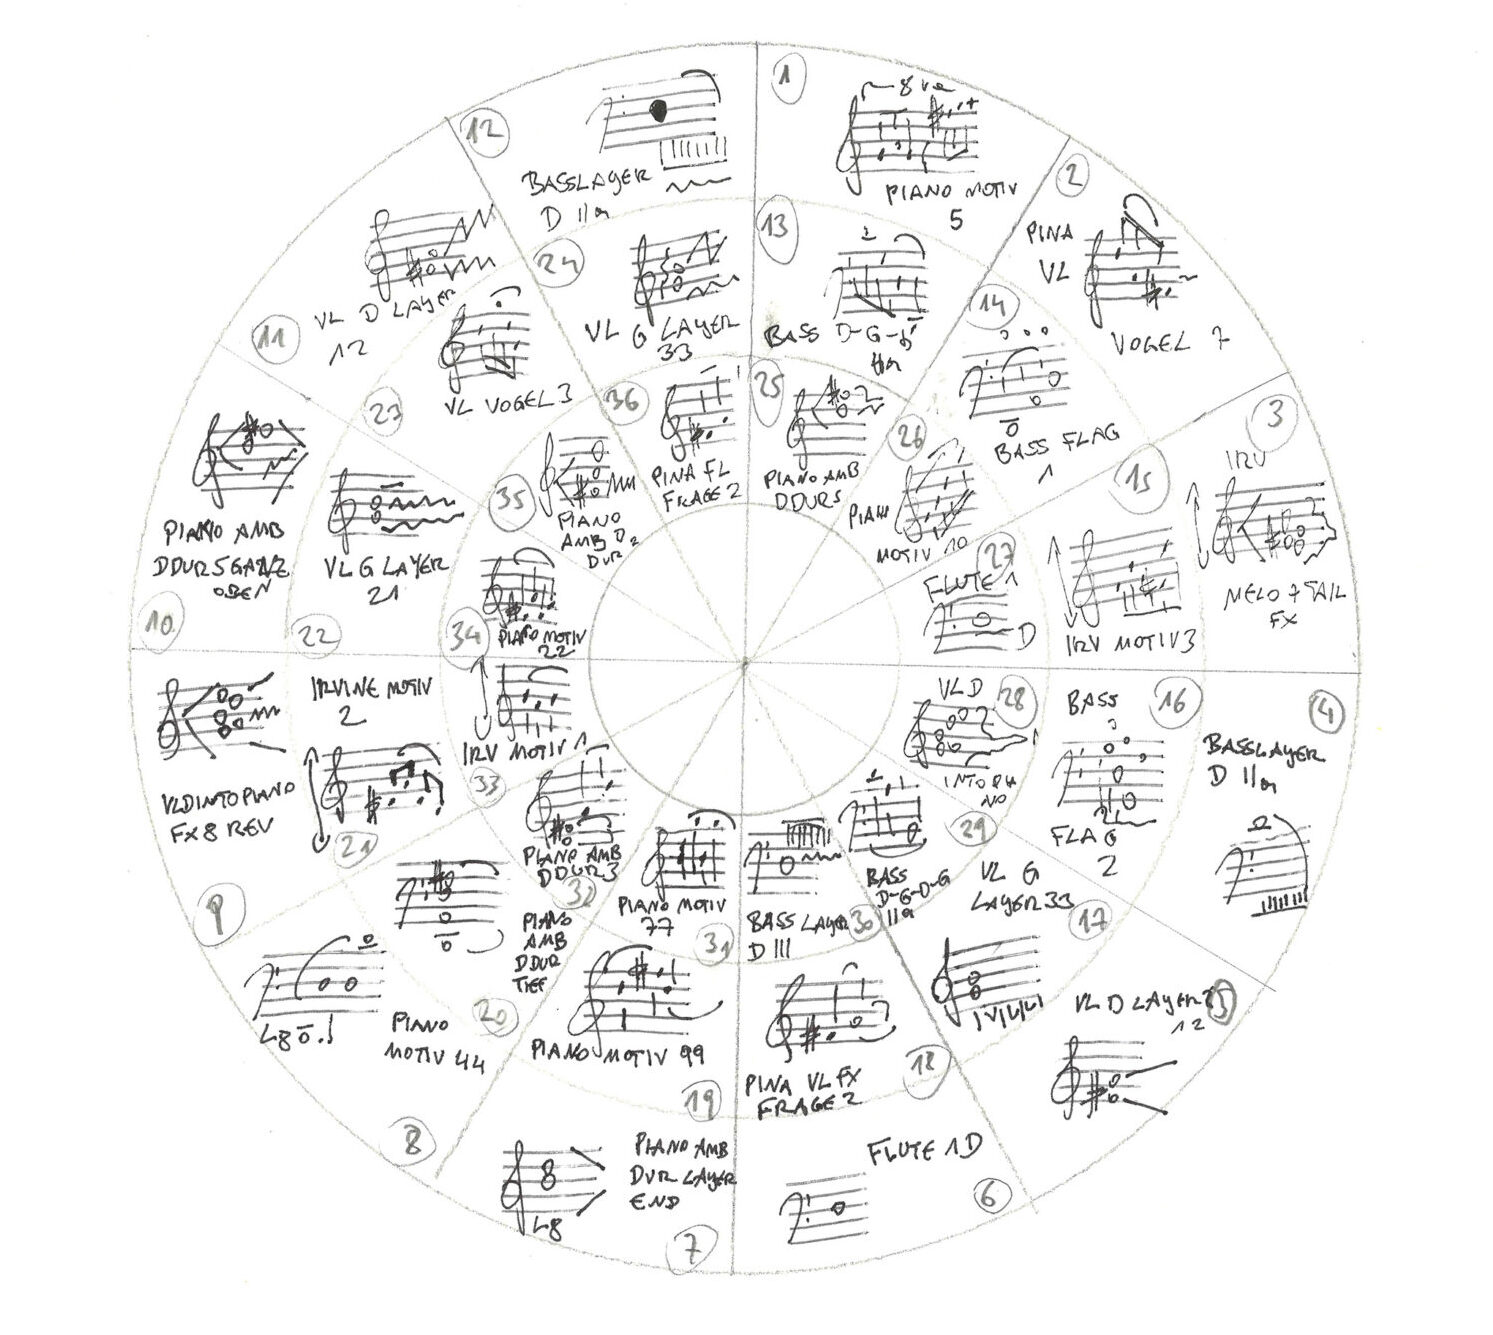 1
8va
PIANO MOTIV
5
2
PINA
VL
VOGEL 7
3
IRV
MELO 7 TAIL
FX
4
BASSLAYER
D II
5
VL D LAYER
12
6
FLUTE 1D
7
PIANO AMB
DUR LAYER
END
8
PIANO
MOTIV 44
9
VLDINTOPIANO
FX 8 REV
10
PIANO AMB
DDUR 5 GANZ
OBEN
11
VL D LAYER
12
12
BASSLAYER
D II
13
BASS D-G-D
14
BASS FLAG
1
15
IRV MOTIV 3
16
BASS
FLAG
2
17
VL G
LAYER 33
18
PINA VL FX
FRAGE 2
19
PIANO MOTIV 99
20
PIANO
AMB
DDUR
TIEF
21
IRVINE MOTIV
2
22
VL G LAYER
21
23
VL VOGEL 3
24
VL G LAYER
33
25
PIANO AMB
DDUR 5
26
PIAN
MOTIV 10
27
FLUTE 1
D
28
VL D
INTO PIA
NO
29
BASS
D-G-D-G
30
BASS LAYER
D III
31
PIANO MOTIV
77
32
PIANO AMB
DDUR 3
33
IRV MOTIV 1
34
PIANO MOTIV
22
35
PIANO
AMB D 2
DUR
36
PINA FL
FRAGE 2